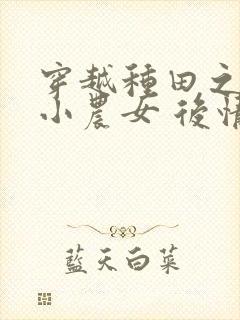 穿越種田之
小農女 後情
藍天白菜